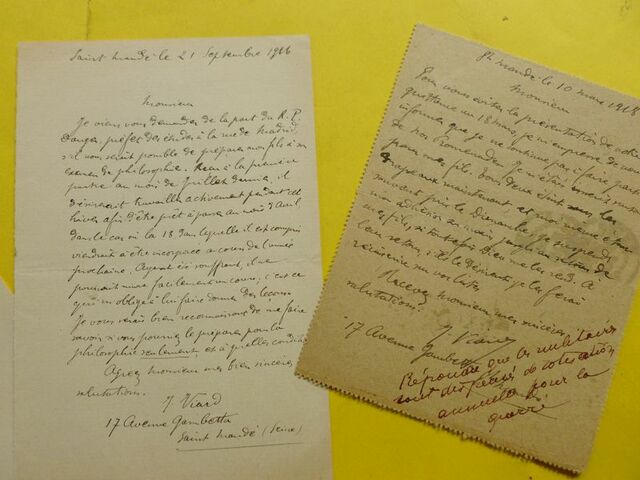 Saint Mandé le 21 Septembre 1916
Monsieur
Je viens vous demander de la part du R. P.
préfet des études à la rue de Madrid,
s'il vous serait possible de préparer mon fils à son
examen de philosophie. Reçu à la première
partie au mois de Juillet dernier, il
désirerait travailler activement pendant cet
hiver afin d'être prêt à passer au mois d'Avril
dans le cas où la 18 dans laquelle il est compris
viendrait à être incorporée au cours de l'année
prochaine. Ayant été souffrant, il ne
pourrait suivre facilement un cours, c'est ce
qui m'oblige à lui faire donner des leçons
Je vous serais bien reconnaissant de me faire
savoir si vous pourriez le préparer pour la
philosophie seulement et à quelles conditions
Agréez Monsieur mes bien sincères
salutations.
J Viard
17 Avenue Gambetta
Saint Mandé (Seine)
St Mandé le 10 mars 1918
Monsieur
Pour vous éviter la présentation de votre
quittance un 18 mars, je m'empresse de vous
informer que je ne continue pas à faire partie
de nos Promenades Je m'étais inscrit
pour mes fils. Tous deux étant sous les
drapeaux maintenant et moi même étant
souvent pris le Dimanche, je suspends
mon adhésion au moins jusqu'au retour de
mes fils, si toutefois Dieu me les rend. A
leur retour, s'ils le désirent, je les ferai
réinscrire sur vos listes
Recevez Monsieur mes sincères
salutations.
J Viard
17 Avenue Gambetta
Répondre que les militaires
sont dispensés de cotisation
annuelle pour la
guerre